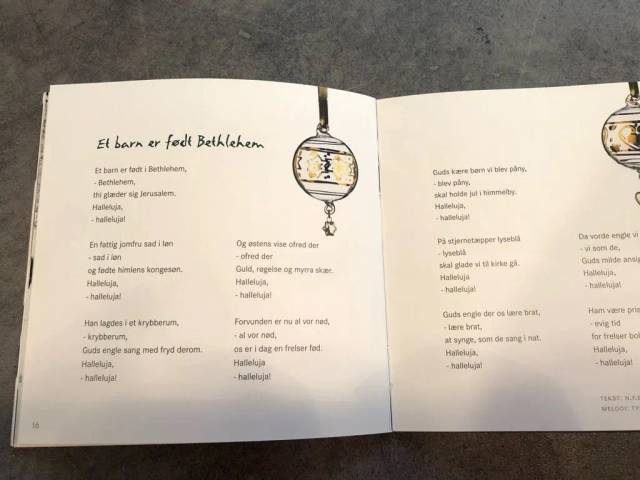 Et barn er født Bethlehem
Et barn er født i Bethlehem,
- Bethlehem,
thi glæder sig Jerusalem.
Halleluja,
- halleluja!
En fattig jomfru sad i løn
- sad i løn
og fødte himlens kongesøn.
Halleluja,
- halleluja!
Han lagdes i et krybberum,
- krybberum,
Guds engle sang med fryd derom.
Halleluja,
- halleluja!
Og østens vise ofred der
- ofred der
Guld, røgelse og myrra skær.
Halleluja,
- halleluja!
Forvunden er nu al vor nød,
- al vor nød,
os er i dag en frelser fød.
Halleluja,
- halleluja!
16
Guds kære børn vi blev påny,
- blev påny,
skal holde jul i himmelby.
Halleluja,
- halleluja!
På stjernetæpper lyseblå
- lyseblå
skal glade vi til kirke gå.
Halleluja
- halleluja!
Guds engle der os lære brat,
- lære brat,
at synge, som de sang i nat.
Halleluja,
- halleluja!
Da vorde engle vi
- vi som de,
Guds milde
Halleluja,
- halleluja!
Ham være
- evig tid
for frelser
Halleluja,
- halleluja!
TEKST: N.F.
MELODI: